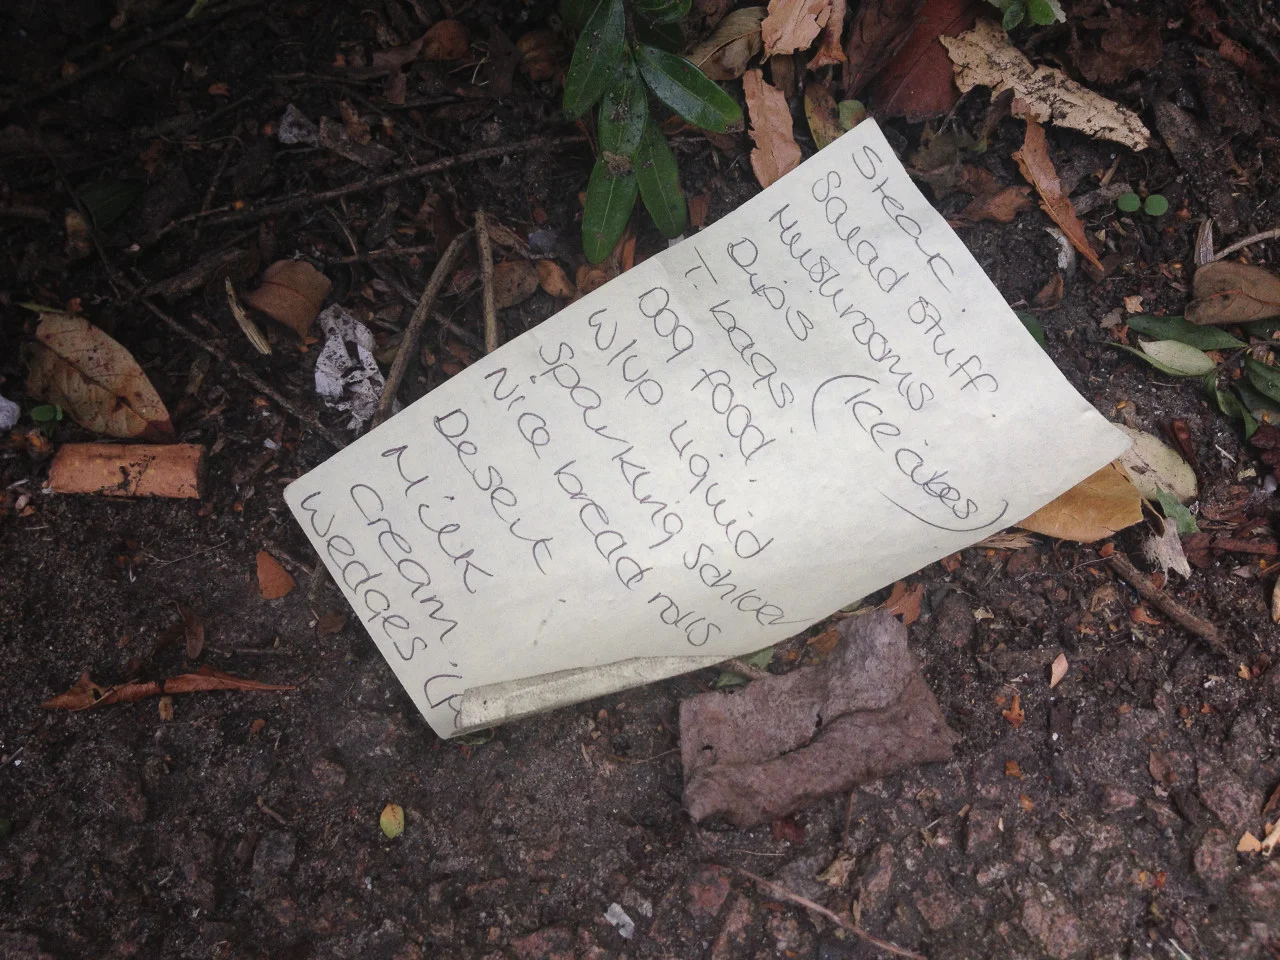 Steak.
Salad stuff.
Mushrooms
Dips (Ice cubes)
T. bags
Dog food.
W/up liquid
Sparkling Schloer
Nice bread rolls
Desert
Milk
Cream.
Wedges.